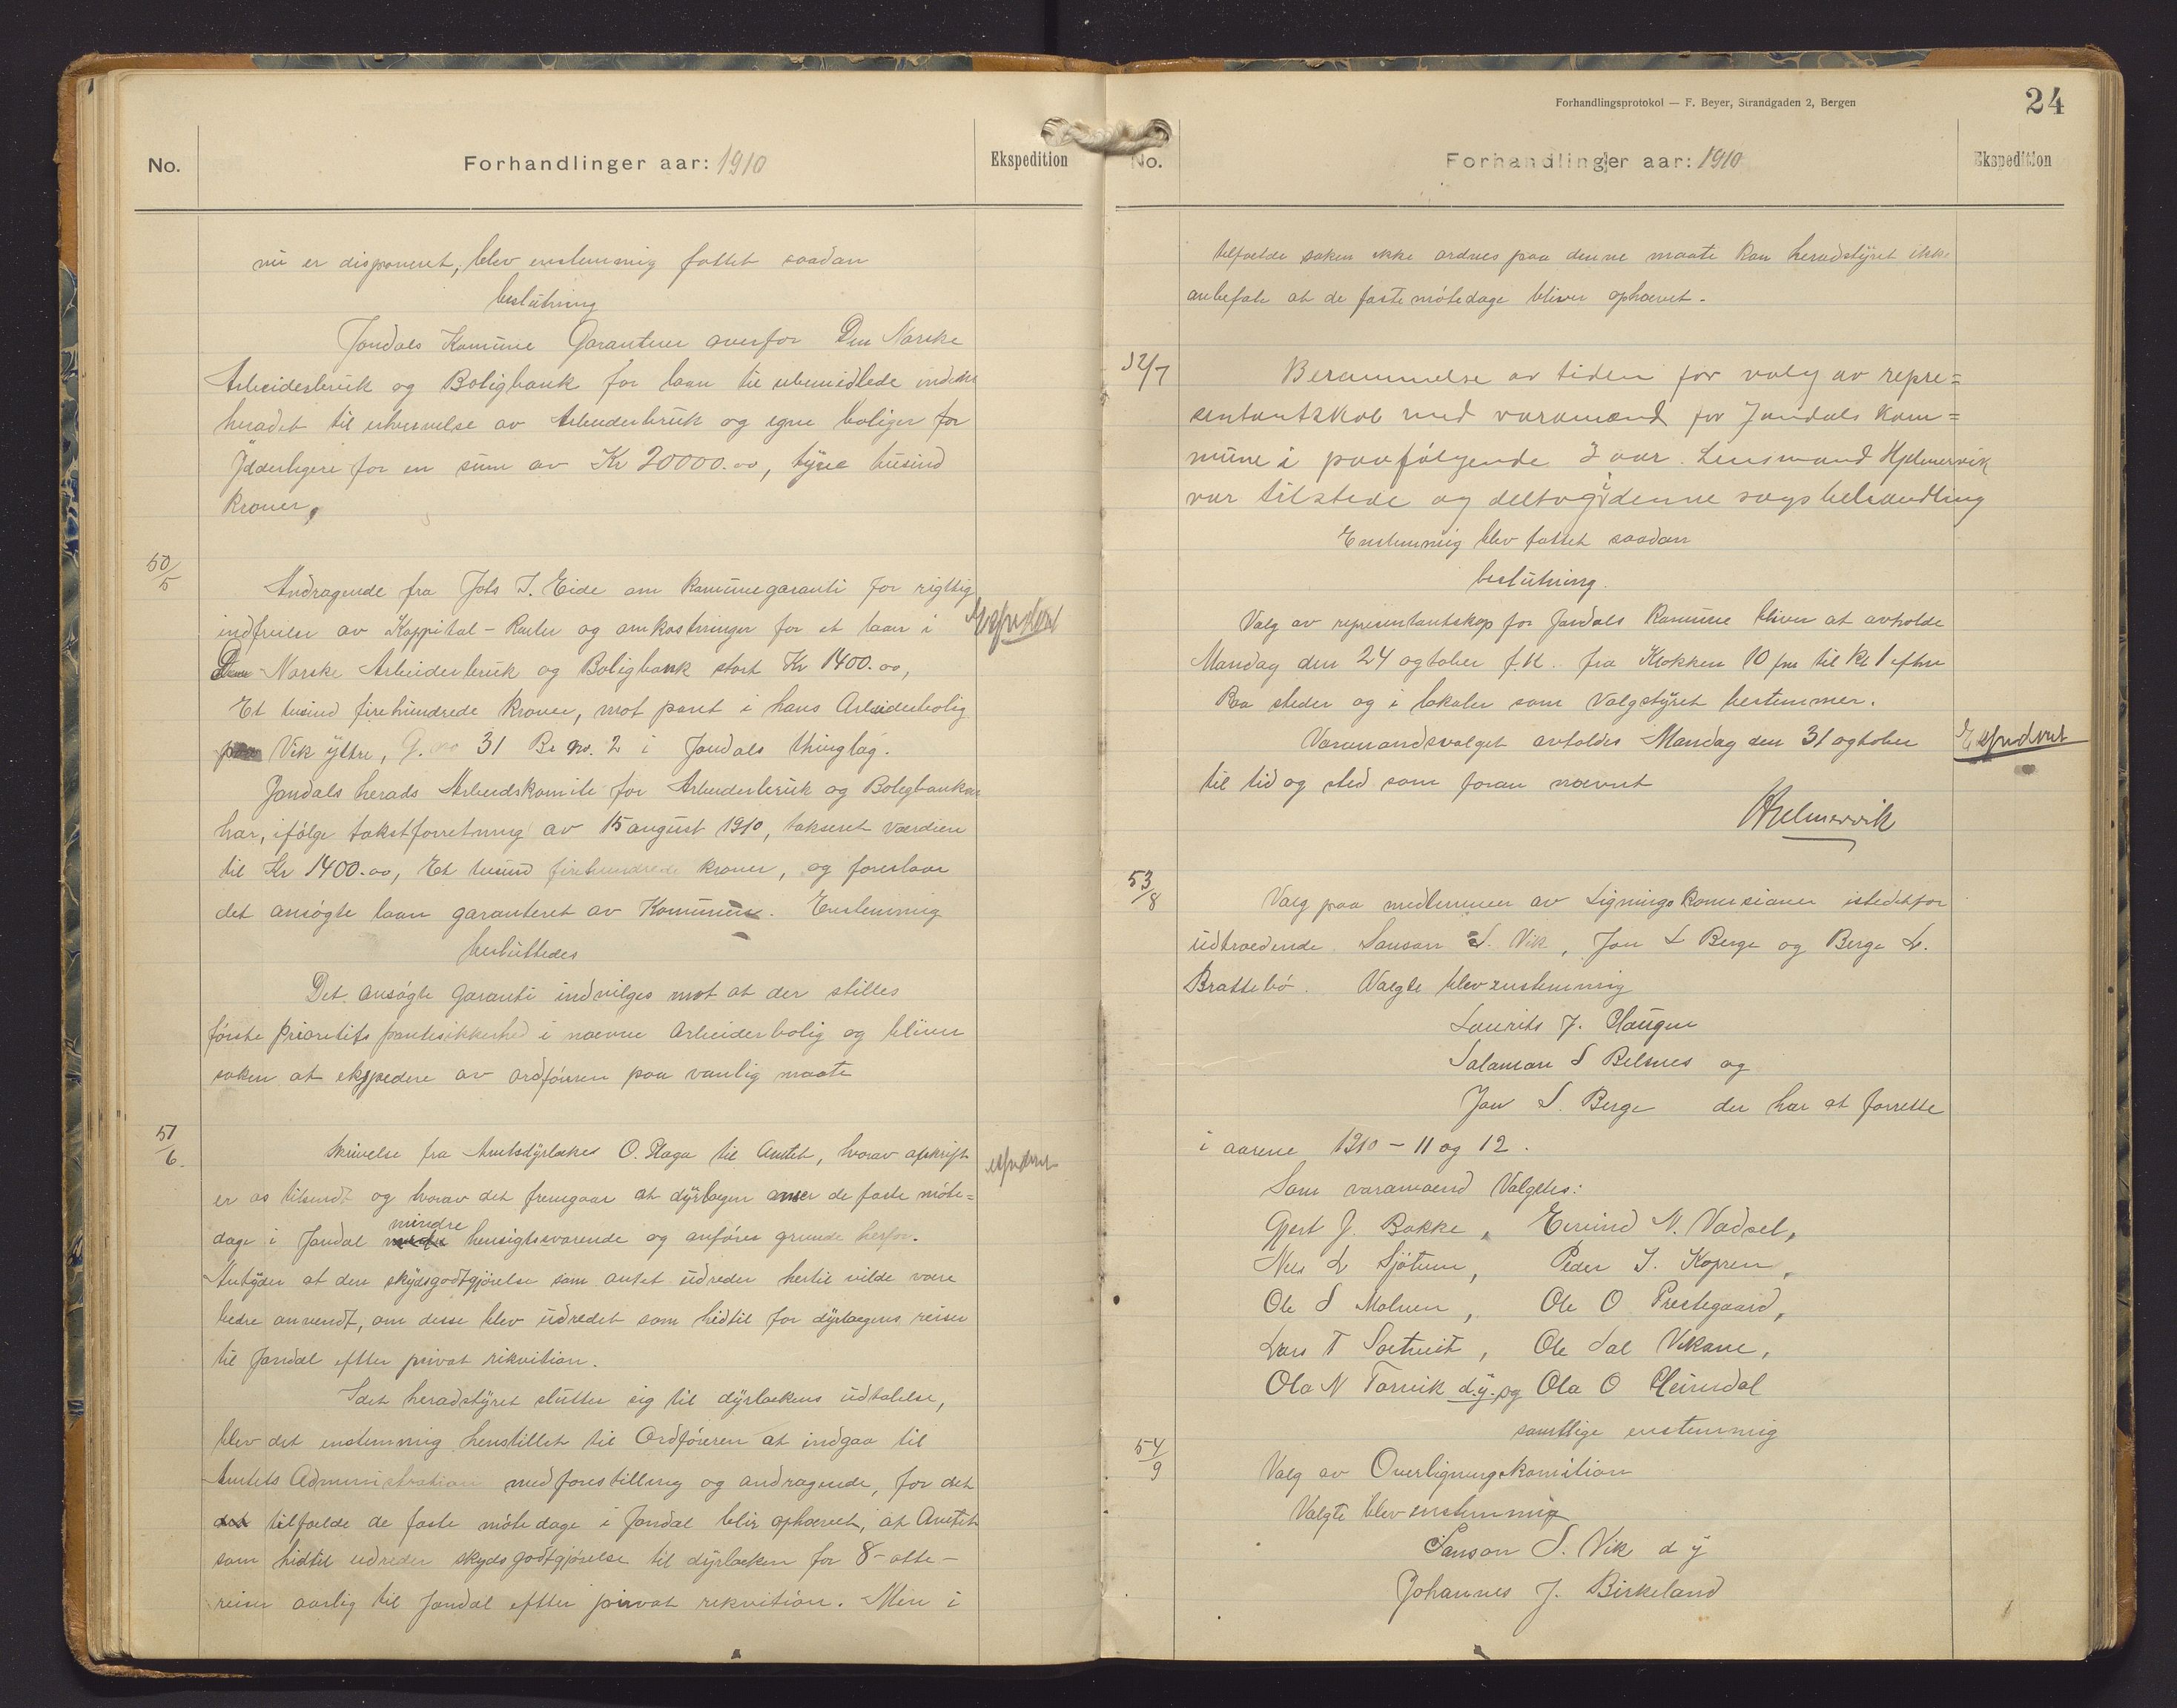 No.
Forhandlinger aar: 1910
Ekspedition
nu er disponeret, blev enstemmig fattet saadan
beslutning
Jondals Komune Garanterer overfor Den Norske
Arbeiderbruk og Boligbank for laan til ubemidlede inden
heradet til erhvervelse av Arbeiderbruk og egne boliger for
Yderligere for en sum av Kr 20000.00, tyve tusind
kroner,
50/5
Andragende fra Jots I. Eide om kommunegaranti for rigttig
indfrielse av Kappital - Renter og omkostninger for et laan i
Ekspedert
Den Norske Arbeiderbruk og Boligbank stort Kr 1400.00,
Et tusind firehundrede kroner, mot pant i hans Arbeiderbolig
paa Vik yttre, G. no 31 Br no. 2 i Jondals thinglag.
Jondals herads Arbeidskomite for Arbeiderbruk og Boligbanken
har, ifølge takstforretning av 15 august 1910, takseret værdien
til Kr 1400.00, Et tusind firehundrede kroner, og foreslaar
det ansøgte laan garanteret av Komunen. Enstemmig
besluttedes
Det ansøgte Garanti indvilges mot at der stilles
første Prioritets pantesikkerhed i nævnte Arbeiderbolig og bliver
saken at ekspedere av ordføreren paa vanlig maate
51/6.
Skrivelse fra Amtsdyrlæke O. Haga til Amtet, hvorav afskrift
ekspedert
er os tilsendt og hvorav det fremgaar at dyrlægen anser de faste møte=
dage i Jondal mindre hensigtssvarende og anfører grunde herfor.
Antyder at den skydsgodtgjørelse som amtet udreder hertil vilde være
bedre anvendt, om disse blev udredet som hidtil for dyrlægens reiser
til Jondal efter privat rikvition.
Idet heradstyret slutter sig til dyrlækens udtalelse,
blev det enstemmig henstillet til Ordføreren at indgaa til
Amtets Administration med forestilling og andragende, for det
det tilfælde de faste møtedage i Jondal blir ophævet, at Amtet
som hidtil udreder skydsgodtgjørelse til dyrlæken for 8 - otte -
reiser aarlig til Jondal efter privat rekvition. Men i
Forhandlingsprotokol — F. Beyer, Strandgaden 2, Bergen
24
No.
Forhandlinger aar: 1910
Ekspedition
tilfælde saken ikke ordnes paa denne maate kan heradstyret ikke
anbefale at de faste møtedage bliver ophævet.
52/7
Berammelse av tiden for valg av repre=
sentantskab med varamænd for Jondals kom=
mune i paafølgende 3 aar. Lensmand Hjelmervik
var tilstede og deltog i denne sags behandling
Enstemmig blev fattet saadan
beslutning.
Valg av representantskap for Jondals Komune bliver at avholde
Mandag den 24 ogtober f.k. fra Klokken 10 fm til kl 1 efm
Paa steder og i lokaler som Valgstyret bestemmer.
Varamandsvalget avholdes Mandag den 31 ogtober
Ekspedert
til tid og sted som foran nævnt
Hjelmervik
53/8
Valg paa medlemmer av Ligningskomisionen istedetfor
udtrædende Sanson S. Vik, Jon L Berge og Berge L.
Brattebø. Valgte blev enstemmig
Laurits J. Haugen
Salamon S Belsnes og
Jon S. Berge der har at forrette
i aarene 1910 - 11 og 12.
Som varamænd Valgtes:
Gjert J. Bakke, Eivind N. Vadsel,
Nils L Sjøtun, Peder I. Kopren,
Ole S Molven, Ole O Prestegaard,
Lars T Sætveit, Ole Sal Vikane,
Ola N Torvik d.y. og Ola O Heimdal
samtlige enstemmig
54/9
Valg av Overligningskomition
Valgte blev enstemmig
Sanson S. Vik d y
Johannes J. Birkeland